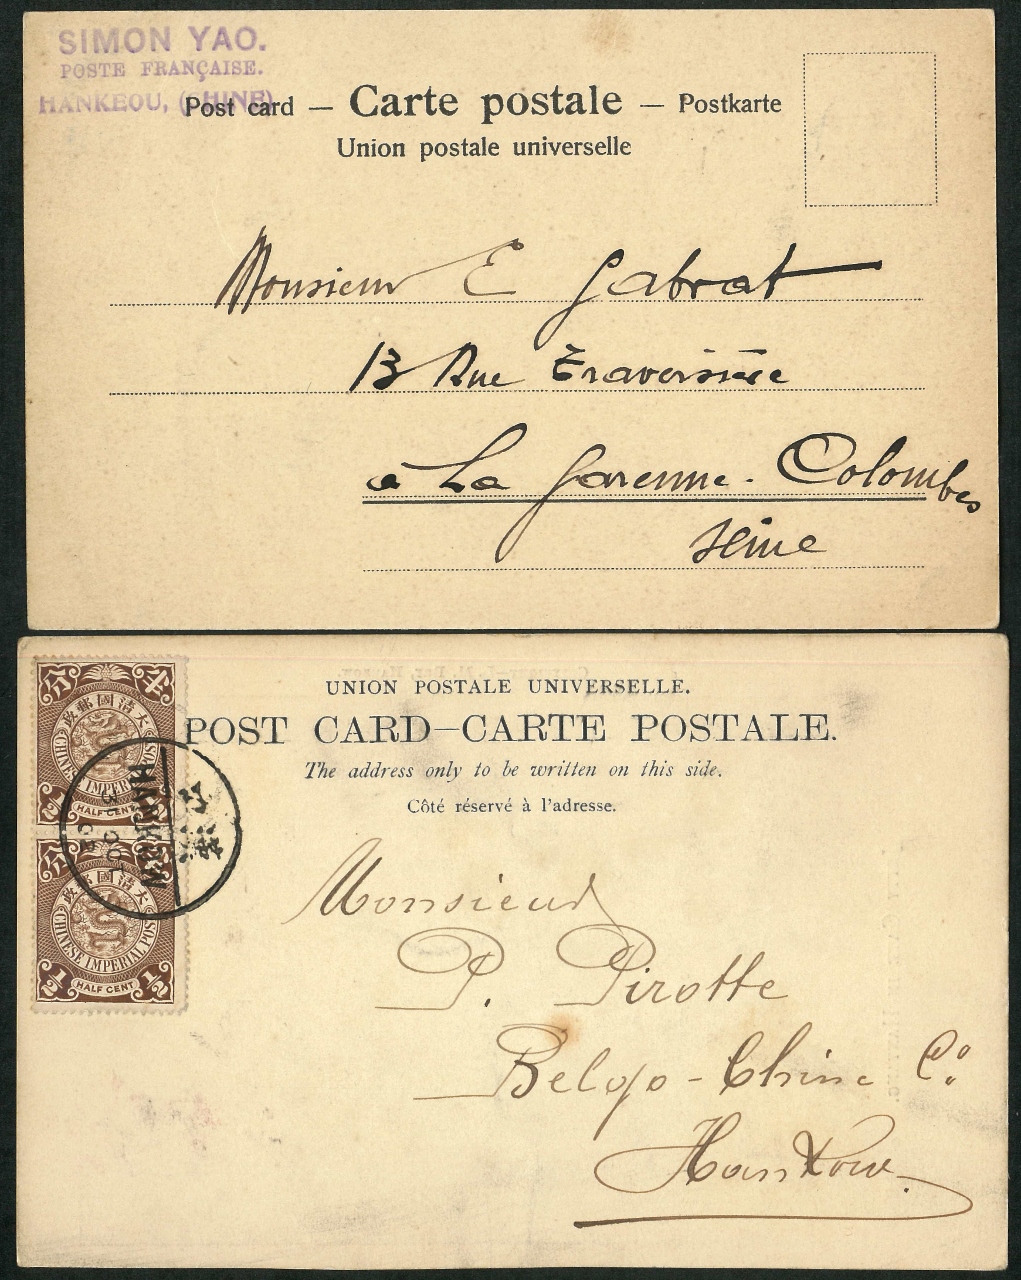 SIMON YAO.
POSTE FRANÇAISE.
HANKEOU, (CHINE)
Post card — Carte postale — Postkarte
Union postale universelle
Monsieur E Gabrat
13 Rue Traversière
à La Garenne-Colombes
Seine
UNION POSTALE UNIVERSELLE.
POST CARD—CARTE POSTALE.
The address only to be written on this side.
Côté réservé à l'adresse.
分 半
大清國郵政
CHINESE IMPERIAL POST
1/2 HALF CENT
HANKOW
3 OCT 03
分
大清國郵政
CHINESE IMPERIAL POST
1/2 HALF CENT 1/2
Monsieur
P. Pirotte
Belgo-Chine Co.
Hankow.